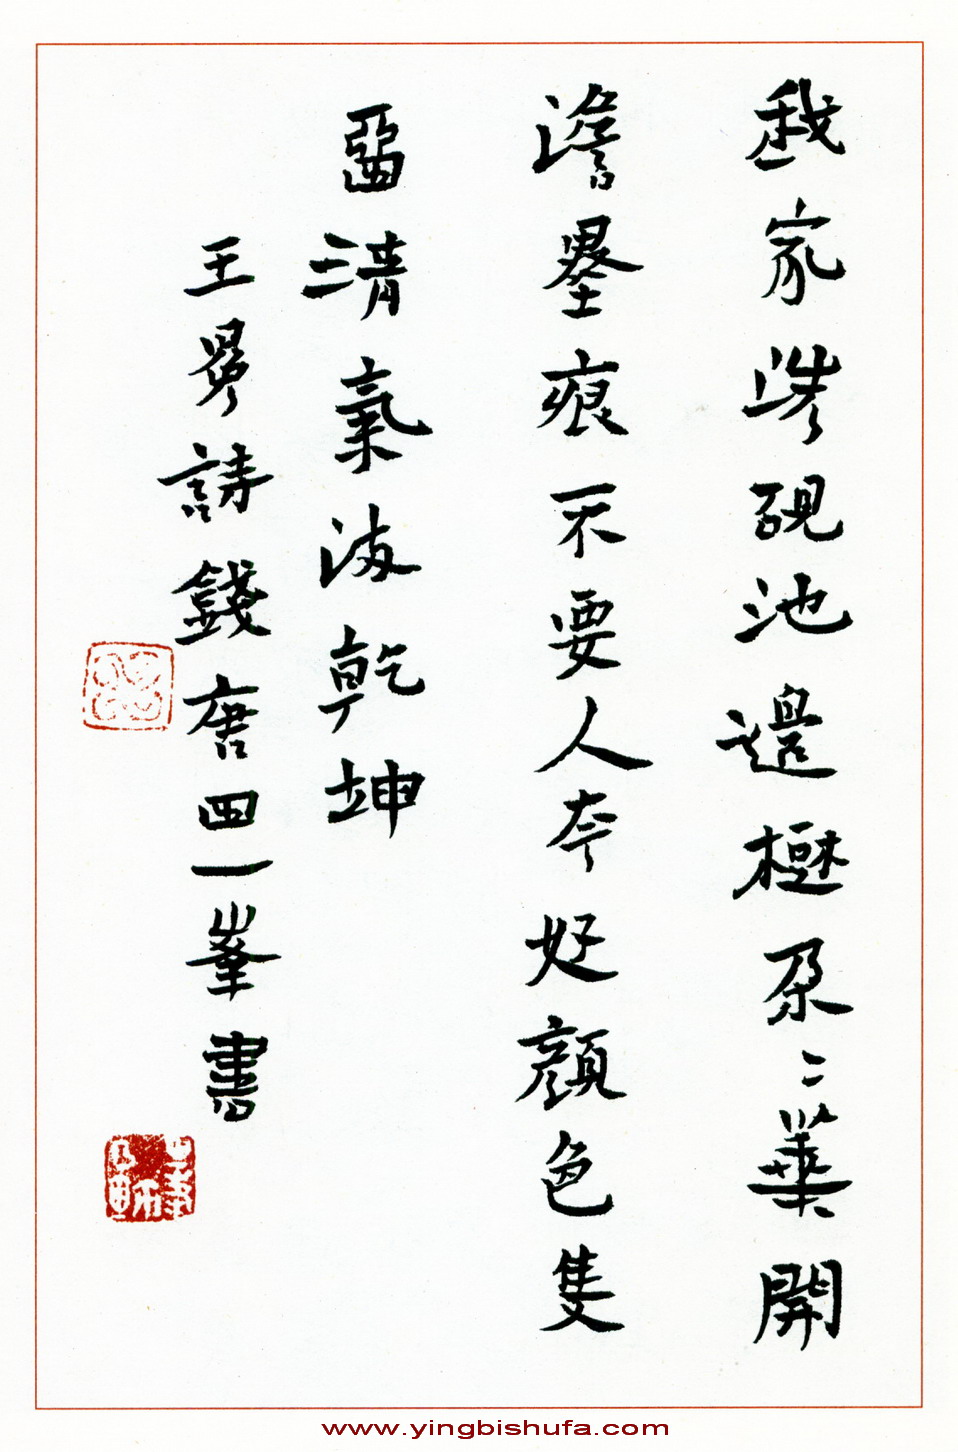 我家洗硯池邊樹朵〻華開
澹墨痕不要人夸好顏色隻
畱清氣滿乾坤
王冕詩錢唐四一峯書
www.yingbishufa.com